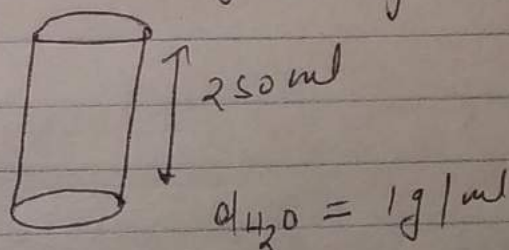 250 ml
d H₂O = 1g/ml